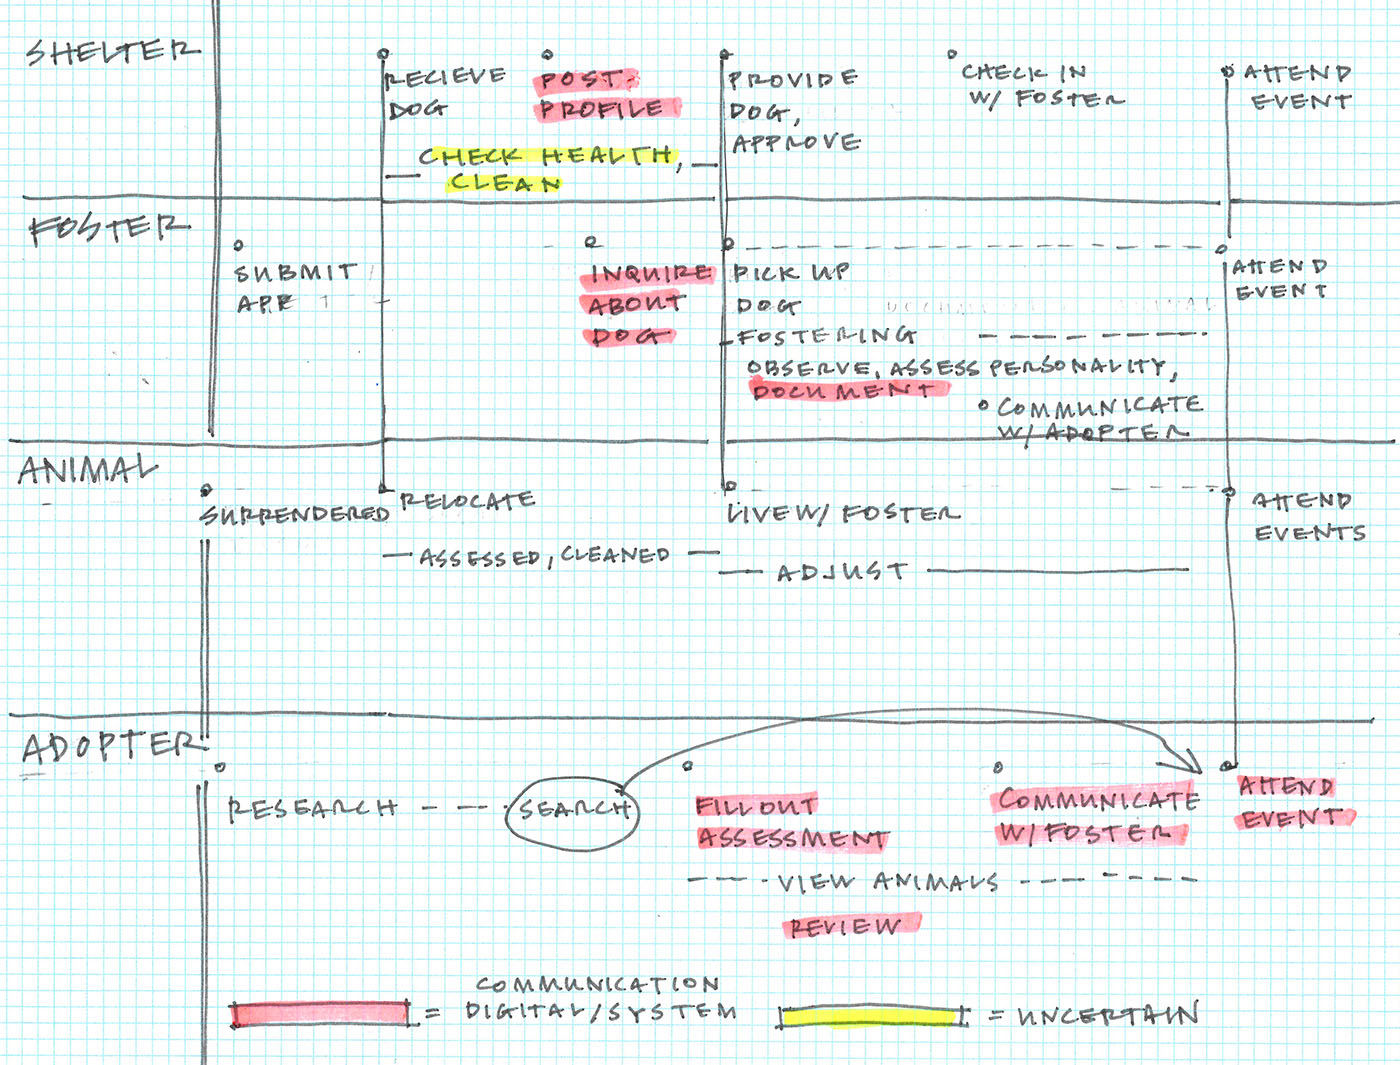 SHELTER
RECIEVE
DOG
POST
PROFILE
CHECK HEALTH,
CLEAN
PROVIDE
DOG,
APPROVE
CHECK IN
W/ FOSTER
ATTEND
EVENT
FOSTER
SUBMIT
APP
INQUIRE
ABOUT
DOG
PICK UP
DOG
FOSTERING
OBSERVE, ASSESS PERSONALITY,
DOCUMENT
COMMUNICATE
W/ ADOPTER
ATTEND
EVENT
ANIMAL
SURRENDERED
RELOCATE
ASSESSED, CLEANED
LIVE W/ FOSTER
ADJUST
ATTEND
EVENTS
ADOPTER
RESEARCH
SEARCH
FILL OUT
ASSESSMENT
VIEW ANIMALS
REVIEW
COMMUNICATE
W/ FOSTER
ATTEND
EVENT
= COMMUNICATION
DIGITAL/SYSTEM
= UNCERTAIN